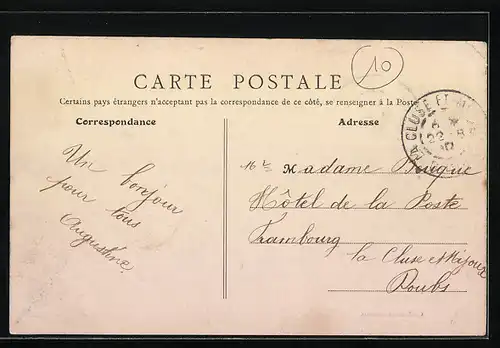 10
CARTE POSTALE
Certains pays étrangers n'acceptant pas la correspondance de ce côté, se renseigner à la Poste
Correspondance
Adresse
Un bonjour
pour tous
Augustine
Madame
Hôtel de la Poste
Frambourg
la Cluse et Mijoux
Doubs
LA CLUSE ET
22